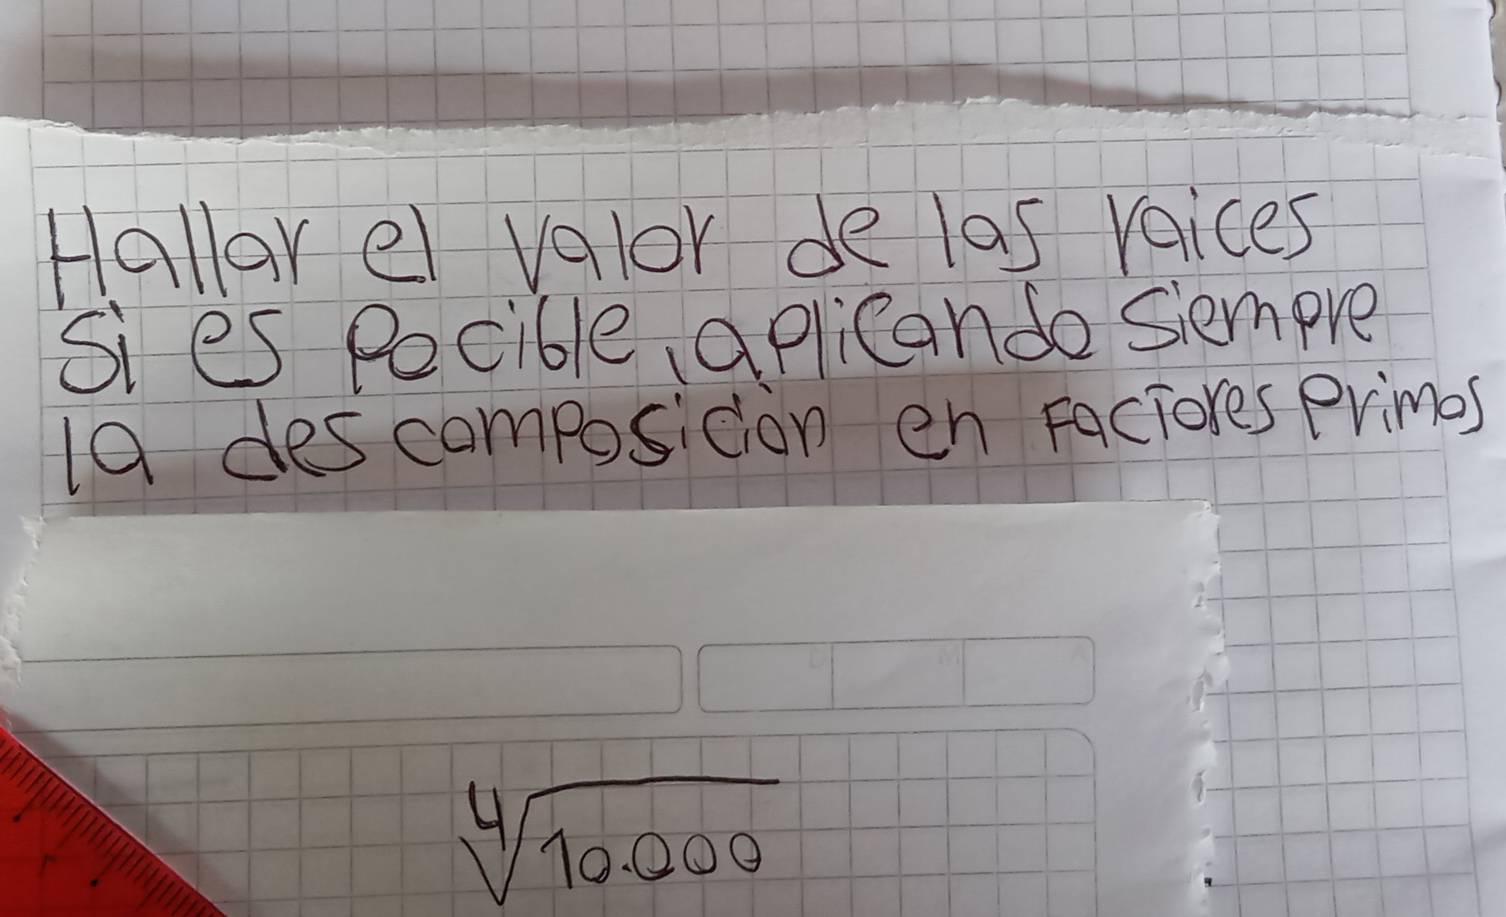 Hallar el valor de las raices
Si es pocible, aplicando siempre
la descomposición en Factores Primos
∜10.000